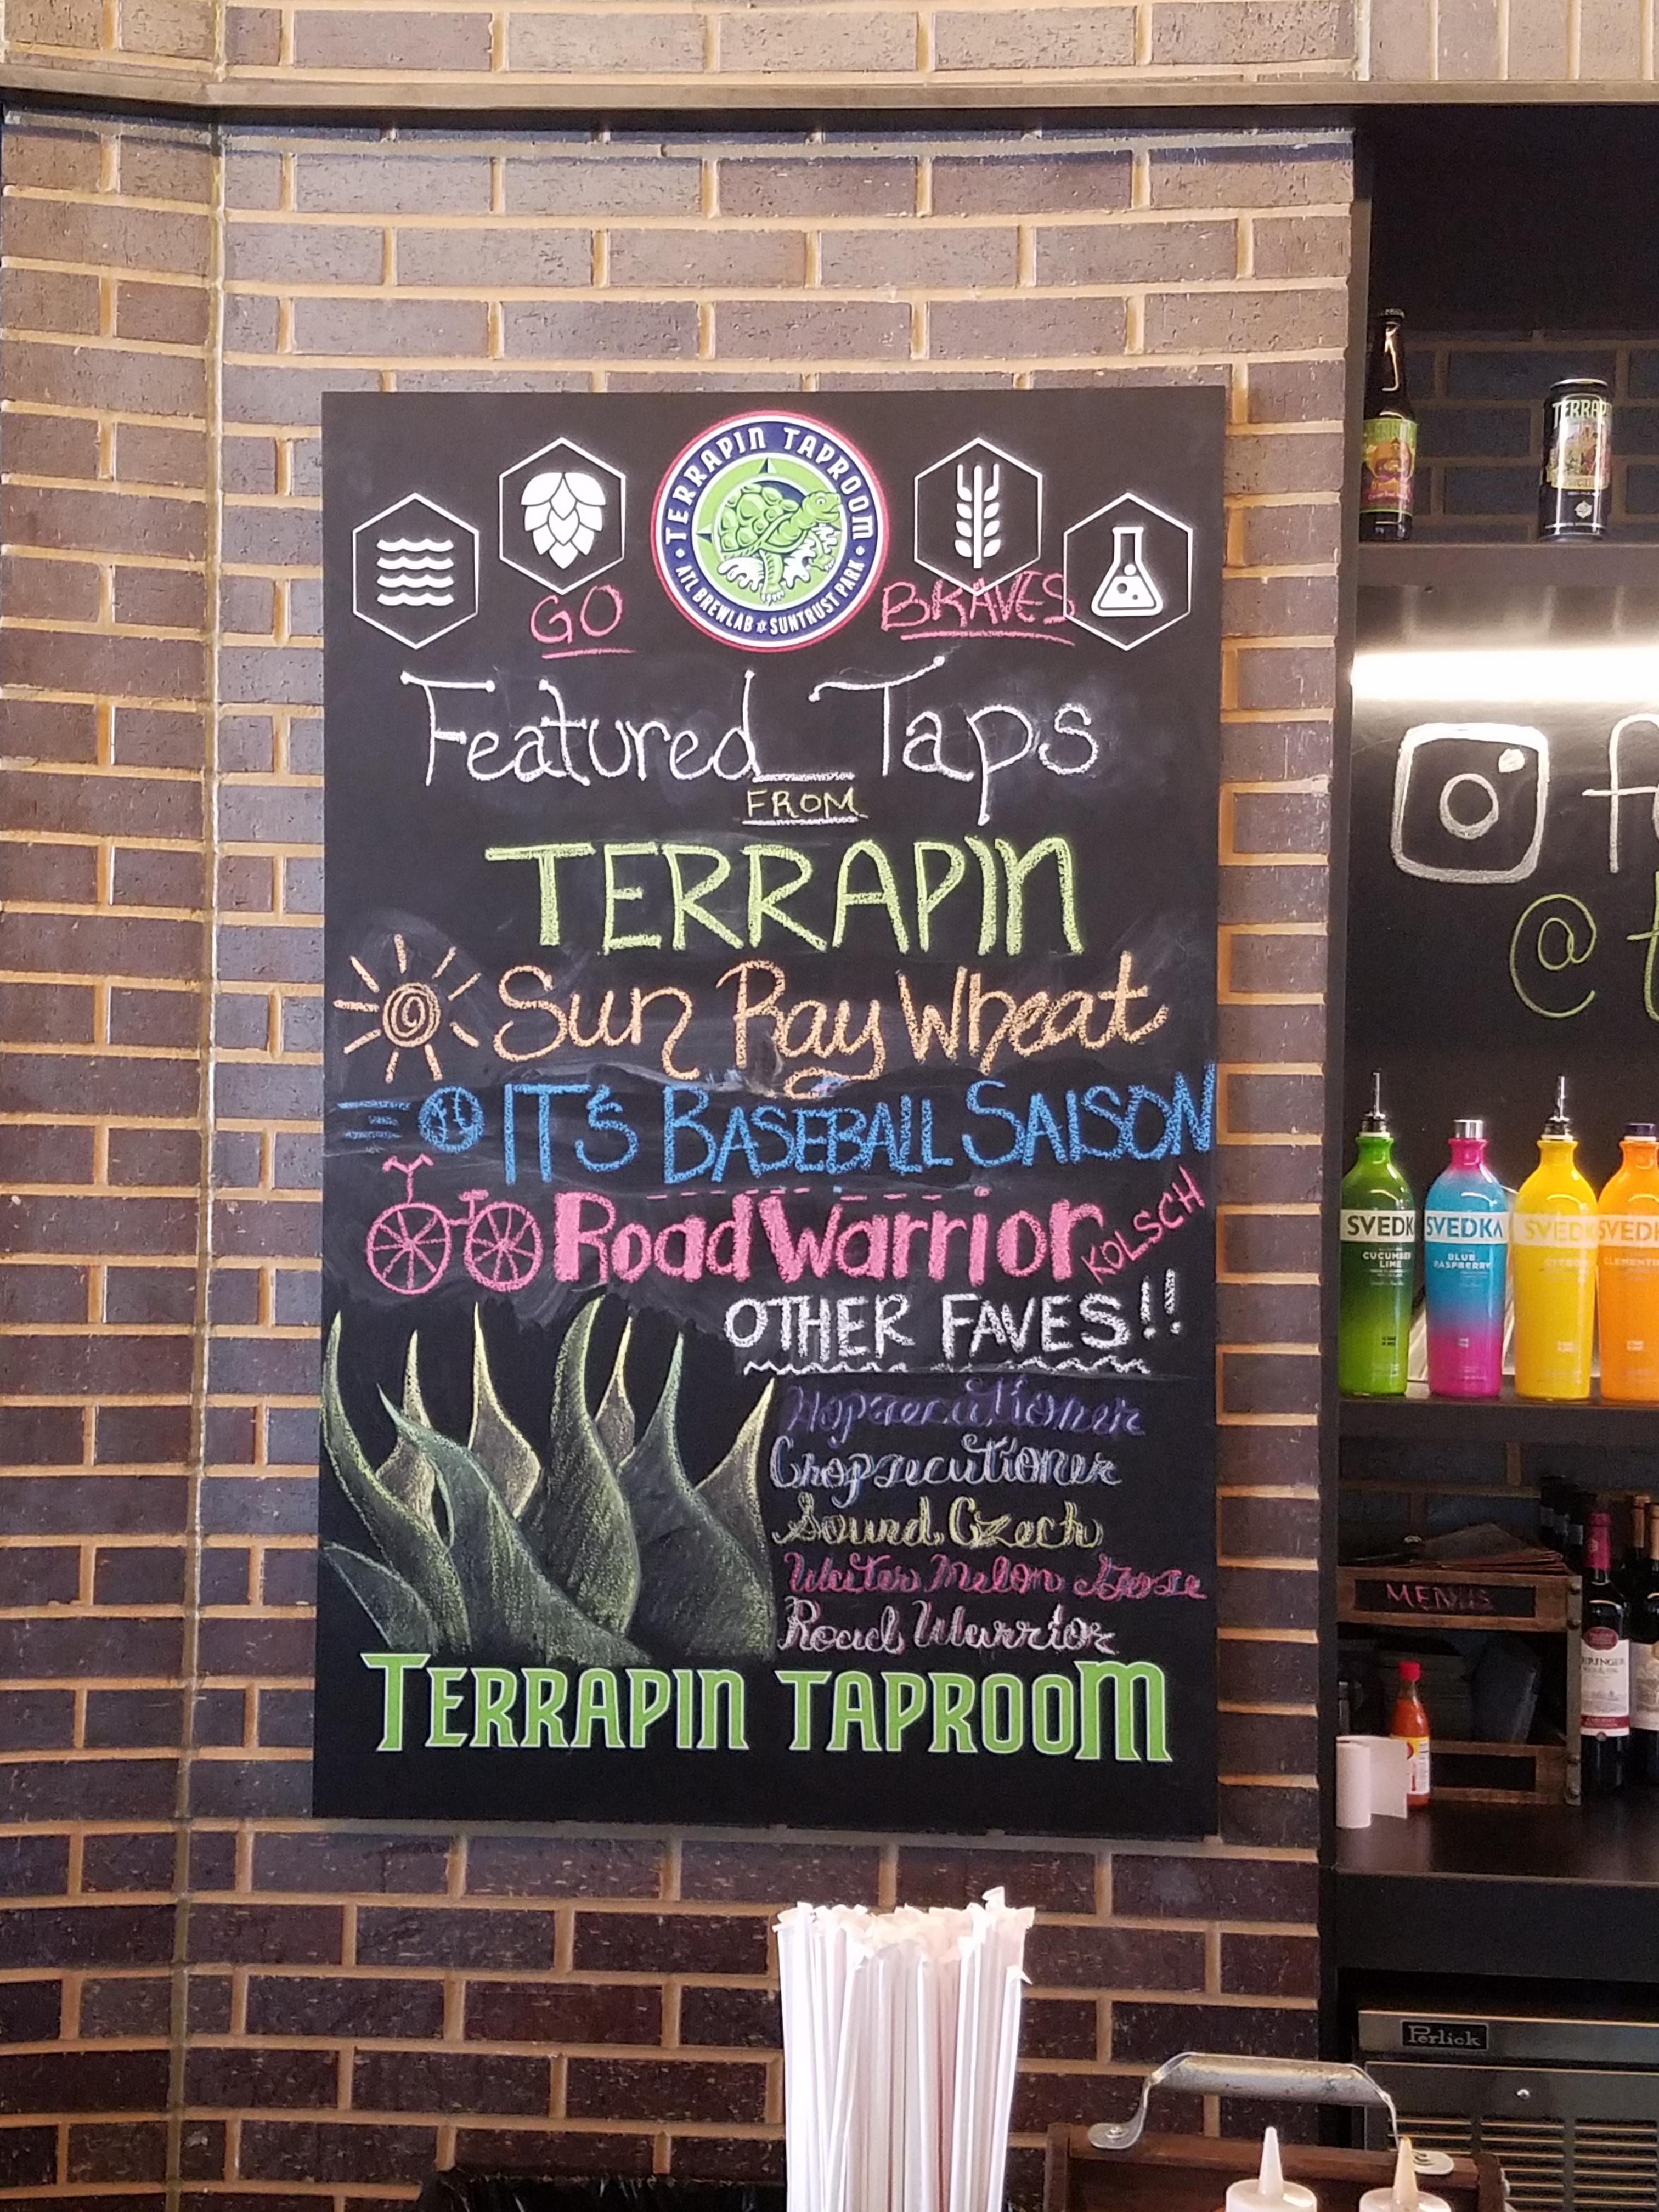 TERRAPIN TAPROOM
ATL BREWLAB SUNTRUST PARK
GO BRAVES
Featured Taps
FROM
TERRAPIN
Sun Ray Wheat
IT'S BASEBALL SAISON
Road Warrior KOLSCH
OTHER FAVES!!
Hopsecutioner
Chopsecutioner
Sound Czech
Water Melon Gose
Road Warrior
TERRAPIN TAPROOM
TERRAP
@
SVEDK
CUCUMBER
LIME
SVEDKA
BLUE
RASPBERRY
SVEDK
CITRON
SVEDK
CLEMENTI
MENUS
ERINGER
Perlick